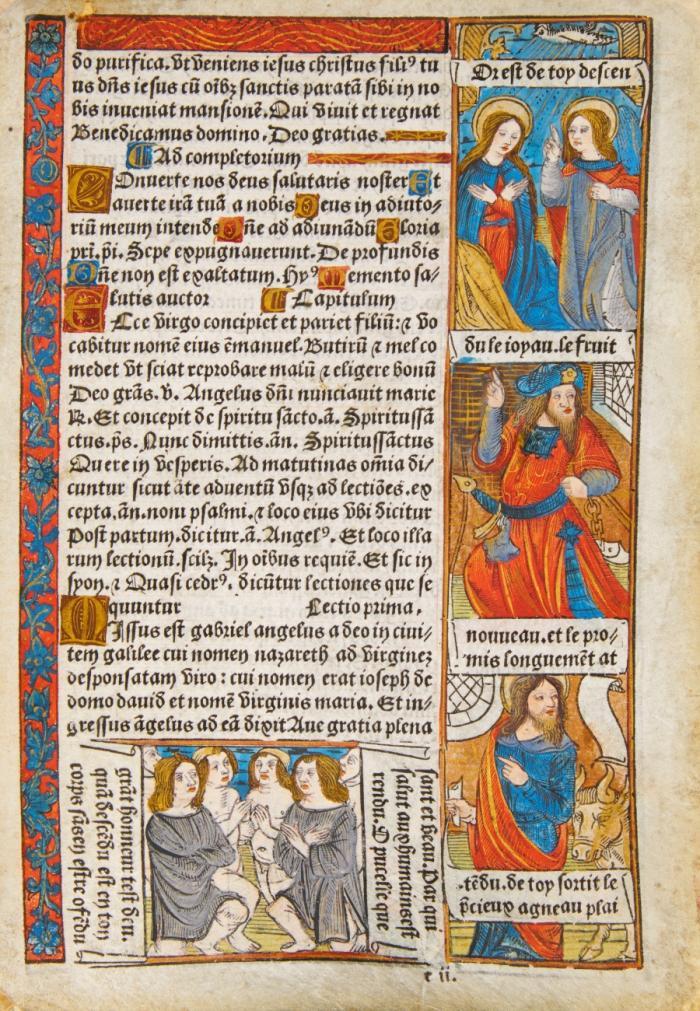 do purifica. Vt veniens iesus christus fili⁹ tu
us dn̄s iesus cū oībꝫ sanctis paratā sibi in no
bis inueniat mansionē. Qui viuit et regnat
Benedicamus domino. Deo gratias.
¶ Ad completorium
COnuerte nos deus salutaris noster Et
auerte irā tuā a nobis Deus in adiuto⸗
riū meum intende Dn̄e ad adiuuādū Gloria
pri. ⁊ fi. Sepe expugnauerunt. De profundis
Dn̄e non est exaltatum. Hy⁹ Memento sa⸗
lutis auctor ¶ Capitulum
ECce virgo concipiet et pariet filiū: ⁊ vo
cabitur nomē eius ēmanuel. Butirū ⁊ mel co
medet vt sciat reprobare malū ⁊ eligere bonū
Deo grās. v. Angelus dn̄i nunciauit marie
R. Et concepit de spiritu sācto. ā. Spiritussā
ctus. p̄s. Nunc dimittis. ān. Spiritussāctus
Quere in vesperis. Ad matutinas om̄ia di⸗
cuntur sicut āte aduentū vsqꝫ ad lectiōes. ex
cepta. ān. noni psalmi. ⁊ loco eius vbi dicitur
Post partum. dicitur. ā. Angel⁹. Et loco illa
rum lectionū. scilꝫ. In oībus requiē. Et sic in
syon. ⁊ Quasi cedr⁹. dicūtur lectiones que se
quuntur Lectio prima.
MIssus est gabriel angelus a deo in ciui⸗
tem galilee cui nomen nazareth ad virgineꝫ
desponsatam viro: cui nomen erat ioseph de
domo dauid et nomē virginis maria. Et in⸗
gressus āgelus ad eā dixit Aue gratia plena
Or est de toy descen
du le ioyau. le fruit
nouueau. et le pro⸗
mis longuemēt at
tēdu. de toy sortit le
p̄cieux agneau plai
sant et beau. Par qui
salut aux humains est
rendu. O pucelle que
grāt honneur test deu.
quā descēdu est en ton
corps sāsen estre ofēdu
e ii.